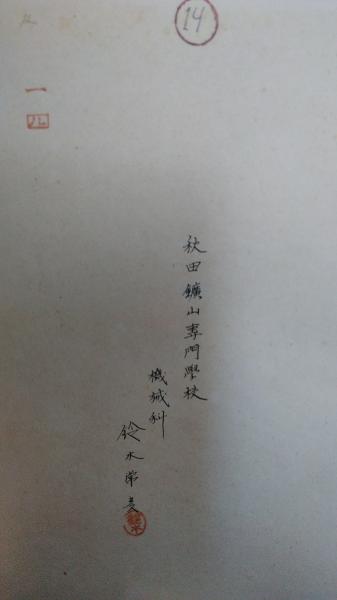 14
一
秋田鑛山專門學校
機械科
鈴木